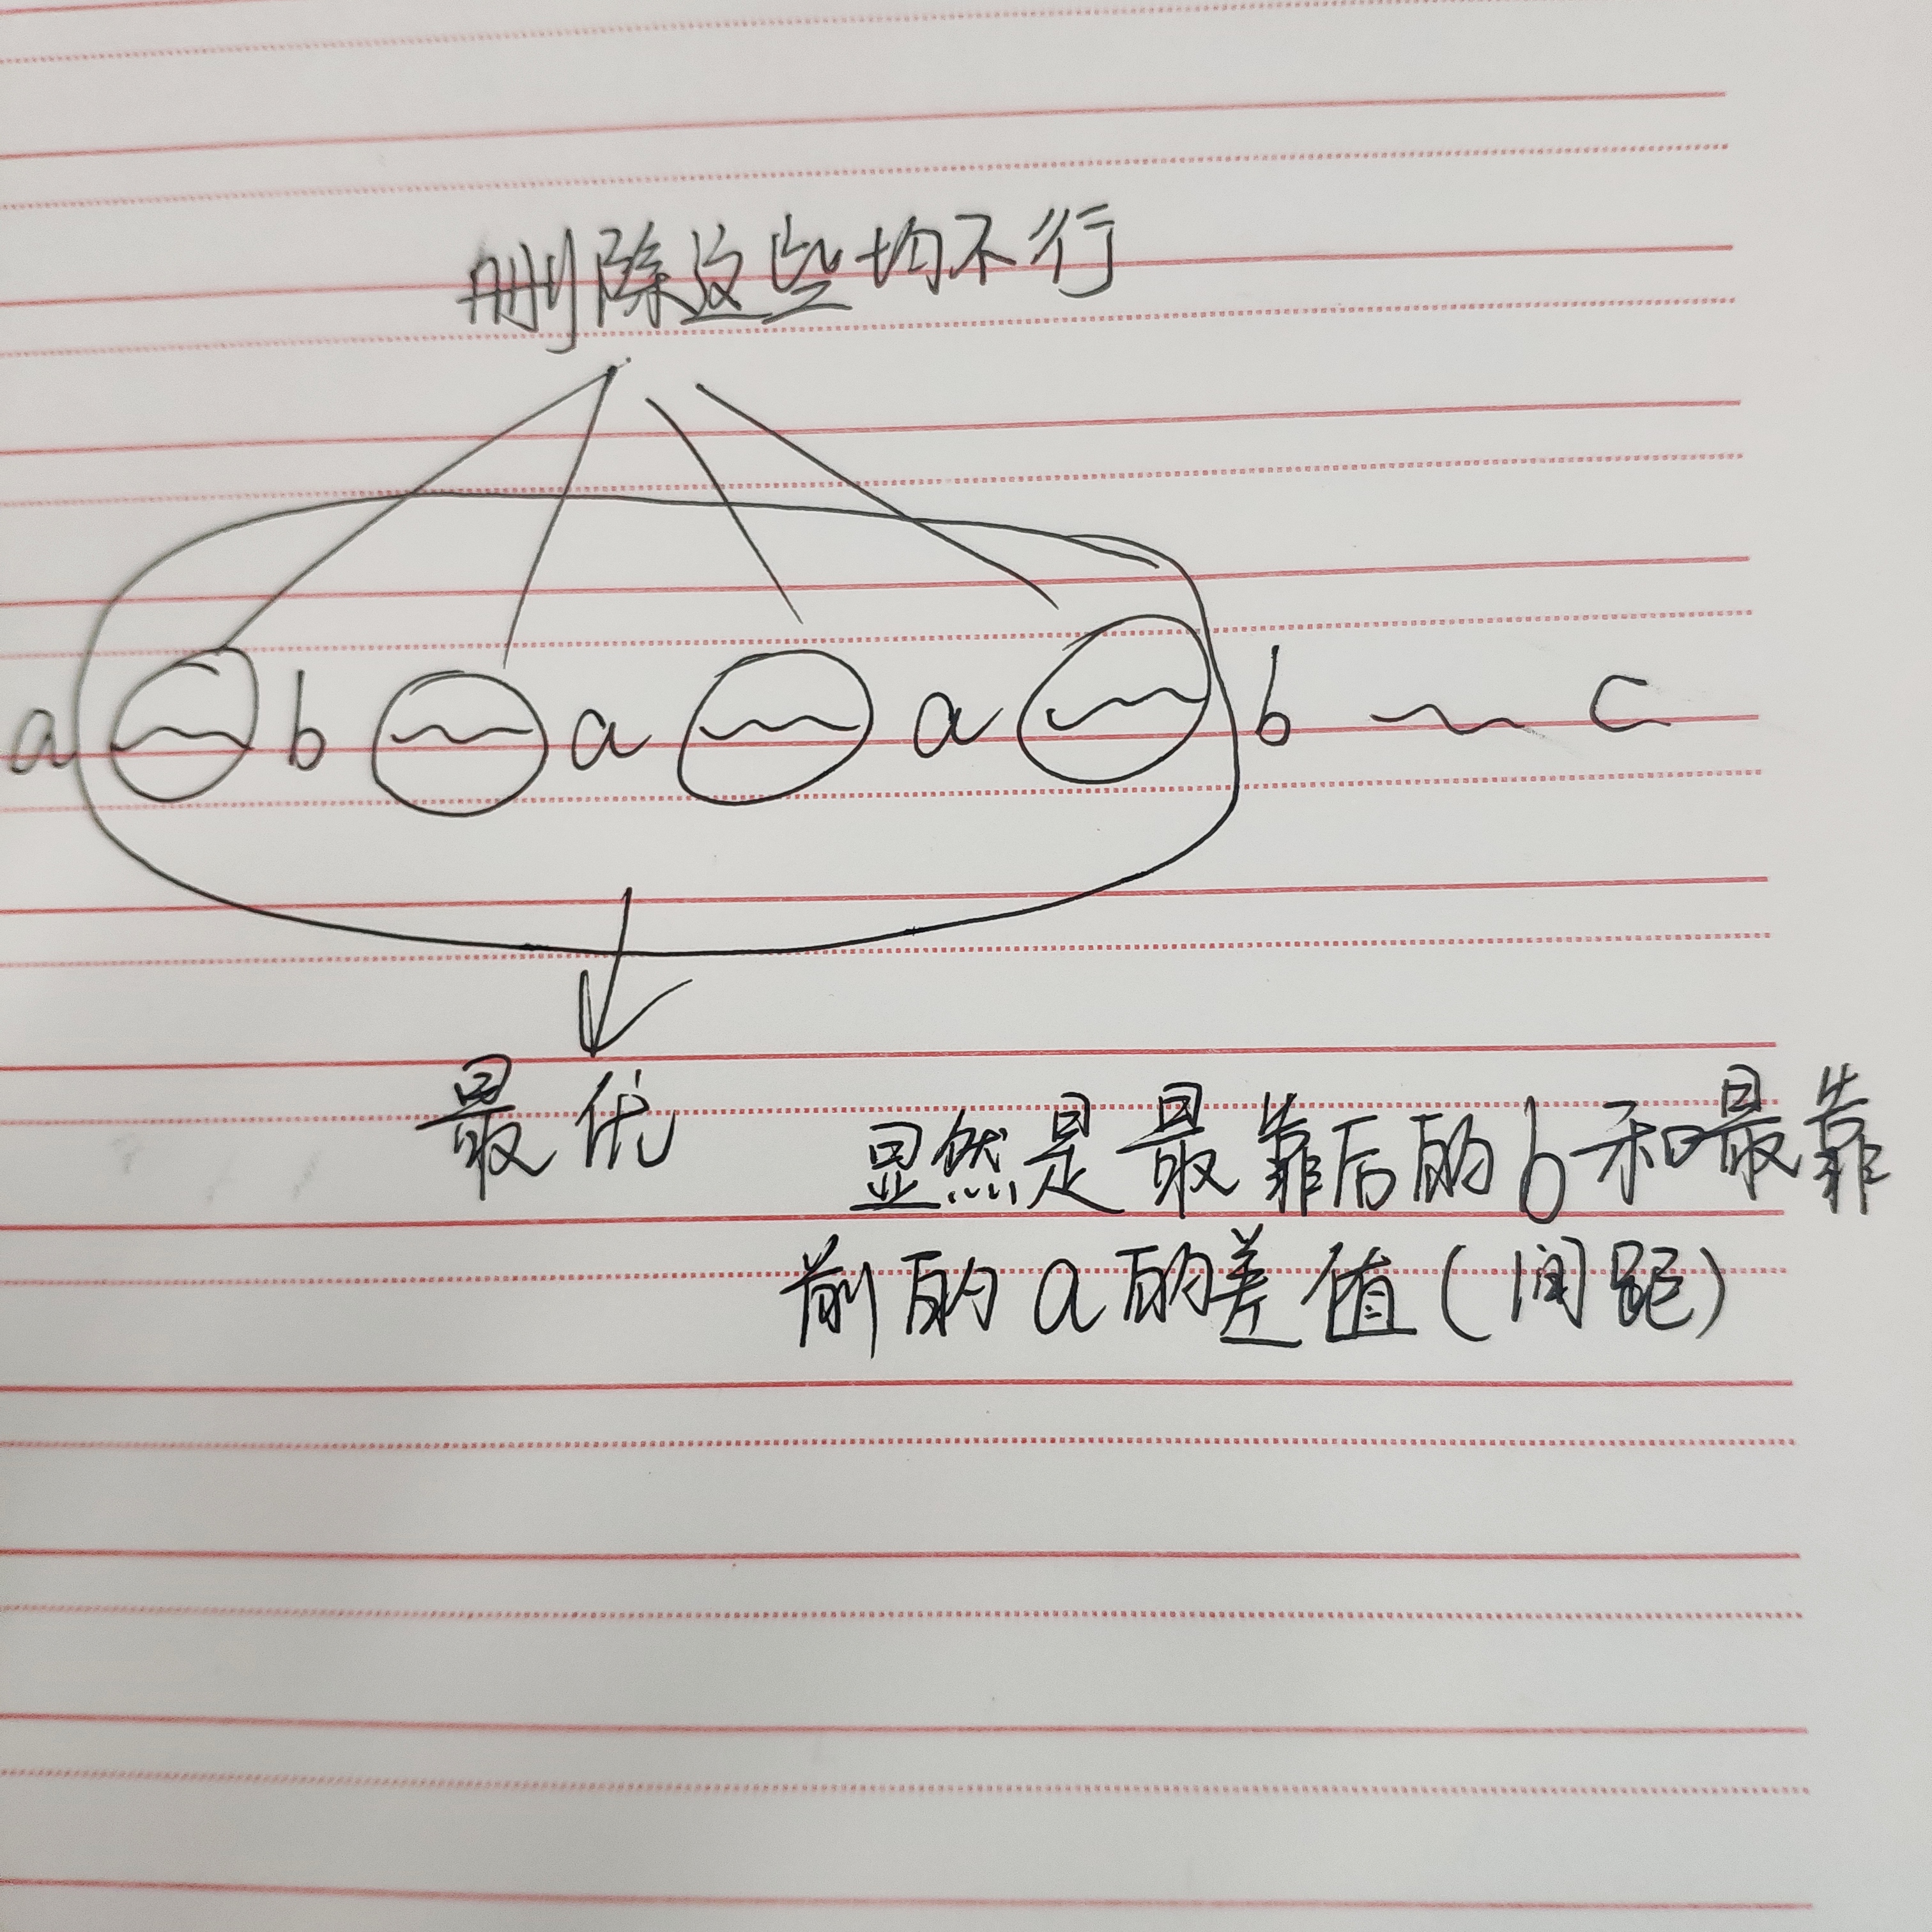 删除这些均不行
a b a a b c
最优
显然是最靠后的b和最靠
前的a的差值(间距)